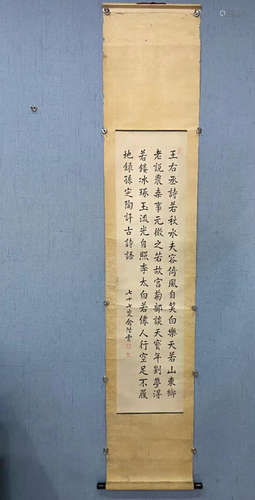 王右丞詩若秋水夫容倚風自笑白樂天若山東鄉
老說農桑事元微之若故宮菊部談天寶年劉夢得
若鏤冰琢玉流光自照李太白若僊人行空足不履
地錄孫定陶評古詩語
七十七叟俞陛雲